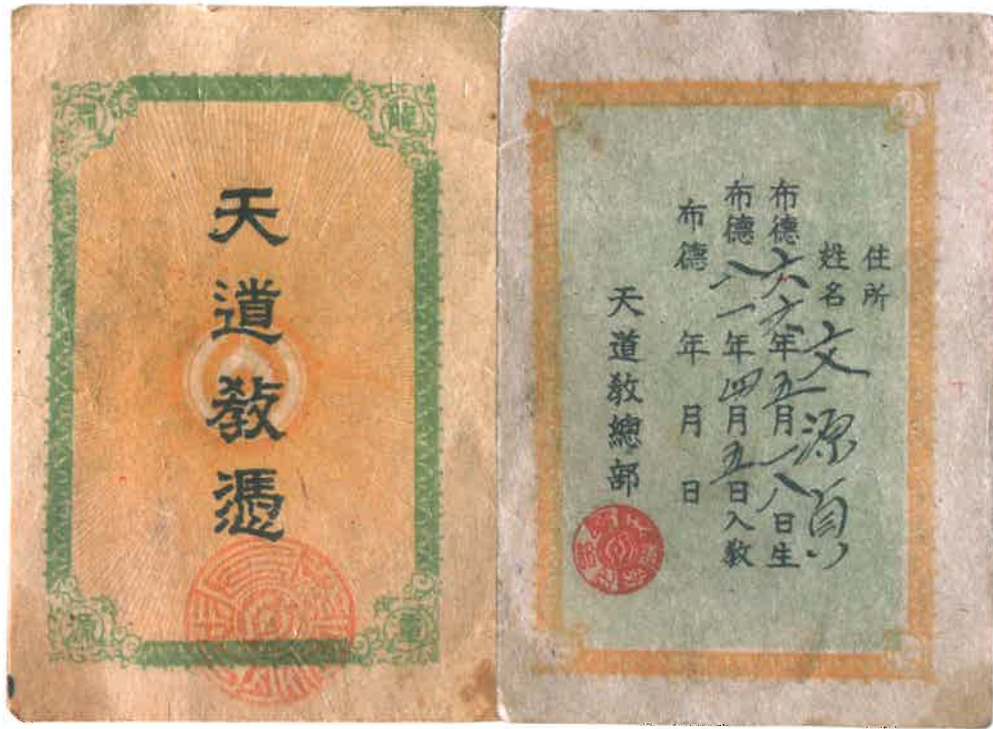 天道敎憑
住所
姓名 文源貞
布德六六年五月一八日生
布德八一年四月五日入敎
布德 年 月 日
天道敎總部